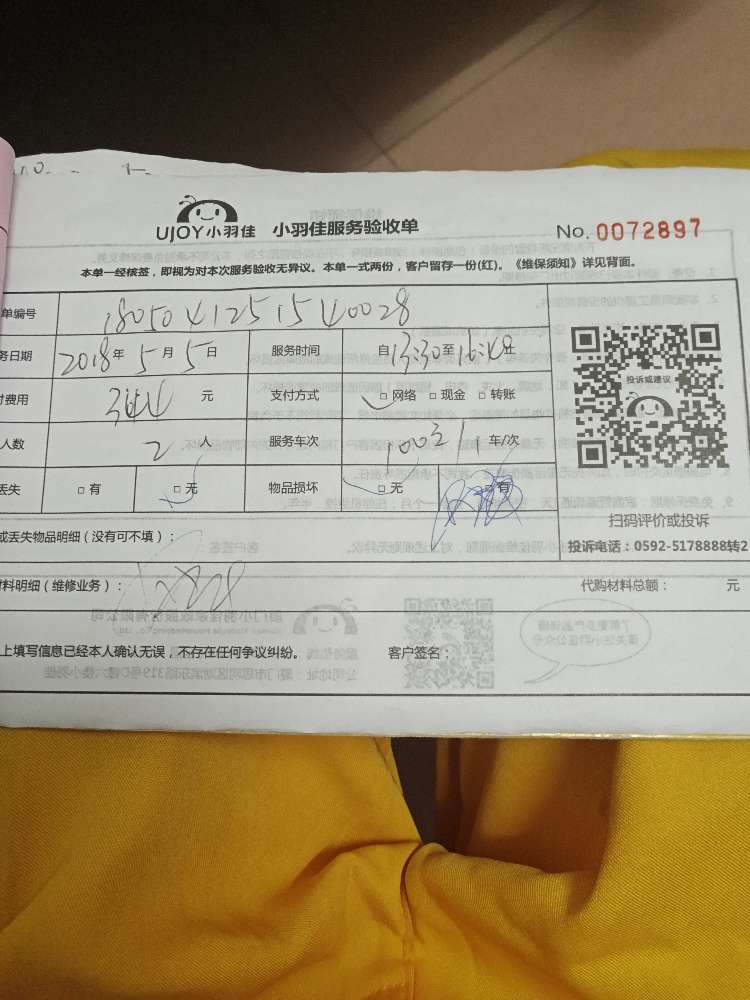 UJOY小羽佳 小羽佳服务验收单 No. 0072897
本单一经核签，即视为对本次服务验收无异议。本单一式两份，客户留存一份(红)。《维保须知》详见背面。
单编号 1805041251540028
务日期 2018年5月5日 服务时间 自13:30至16:48止
付费用 344 元 支付方式 □ 网络 □ 现金 □ 转账
人数 2 人 服务车次 车/次
丢失 □ 有 □ 无 物品损坏 □ 无 有
投诉或建议
扫码评价或投诉
或丢失物品明细（没有可不填）：
投诉电话：0592-5178888转2
材料明细（维修业务）：
代购材料总额： 元
上填写信息已经本人确认无误，不存在任何争议纠纷。 客户签名：